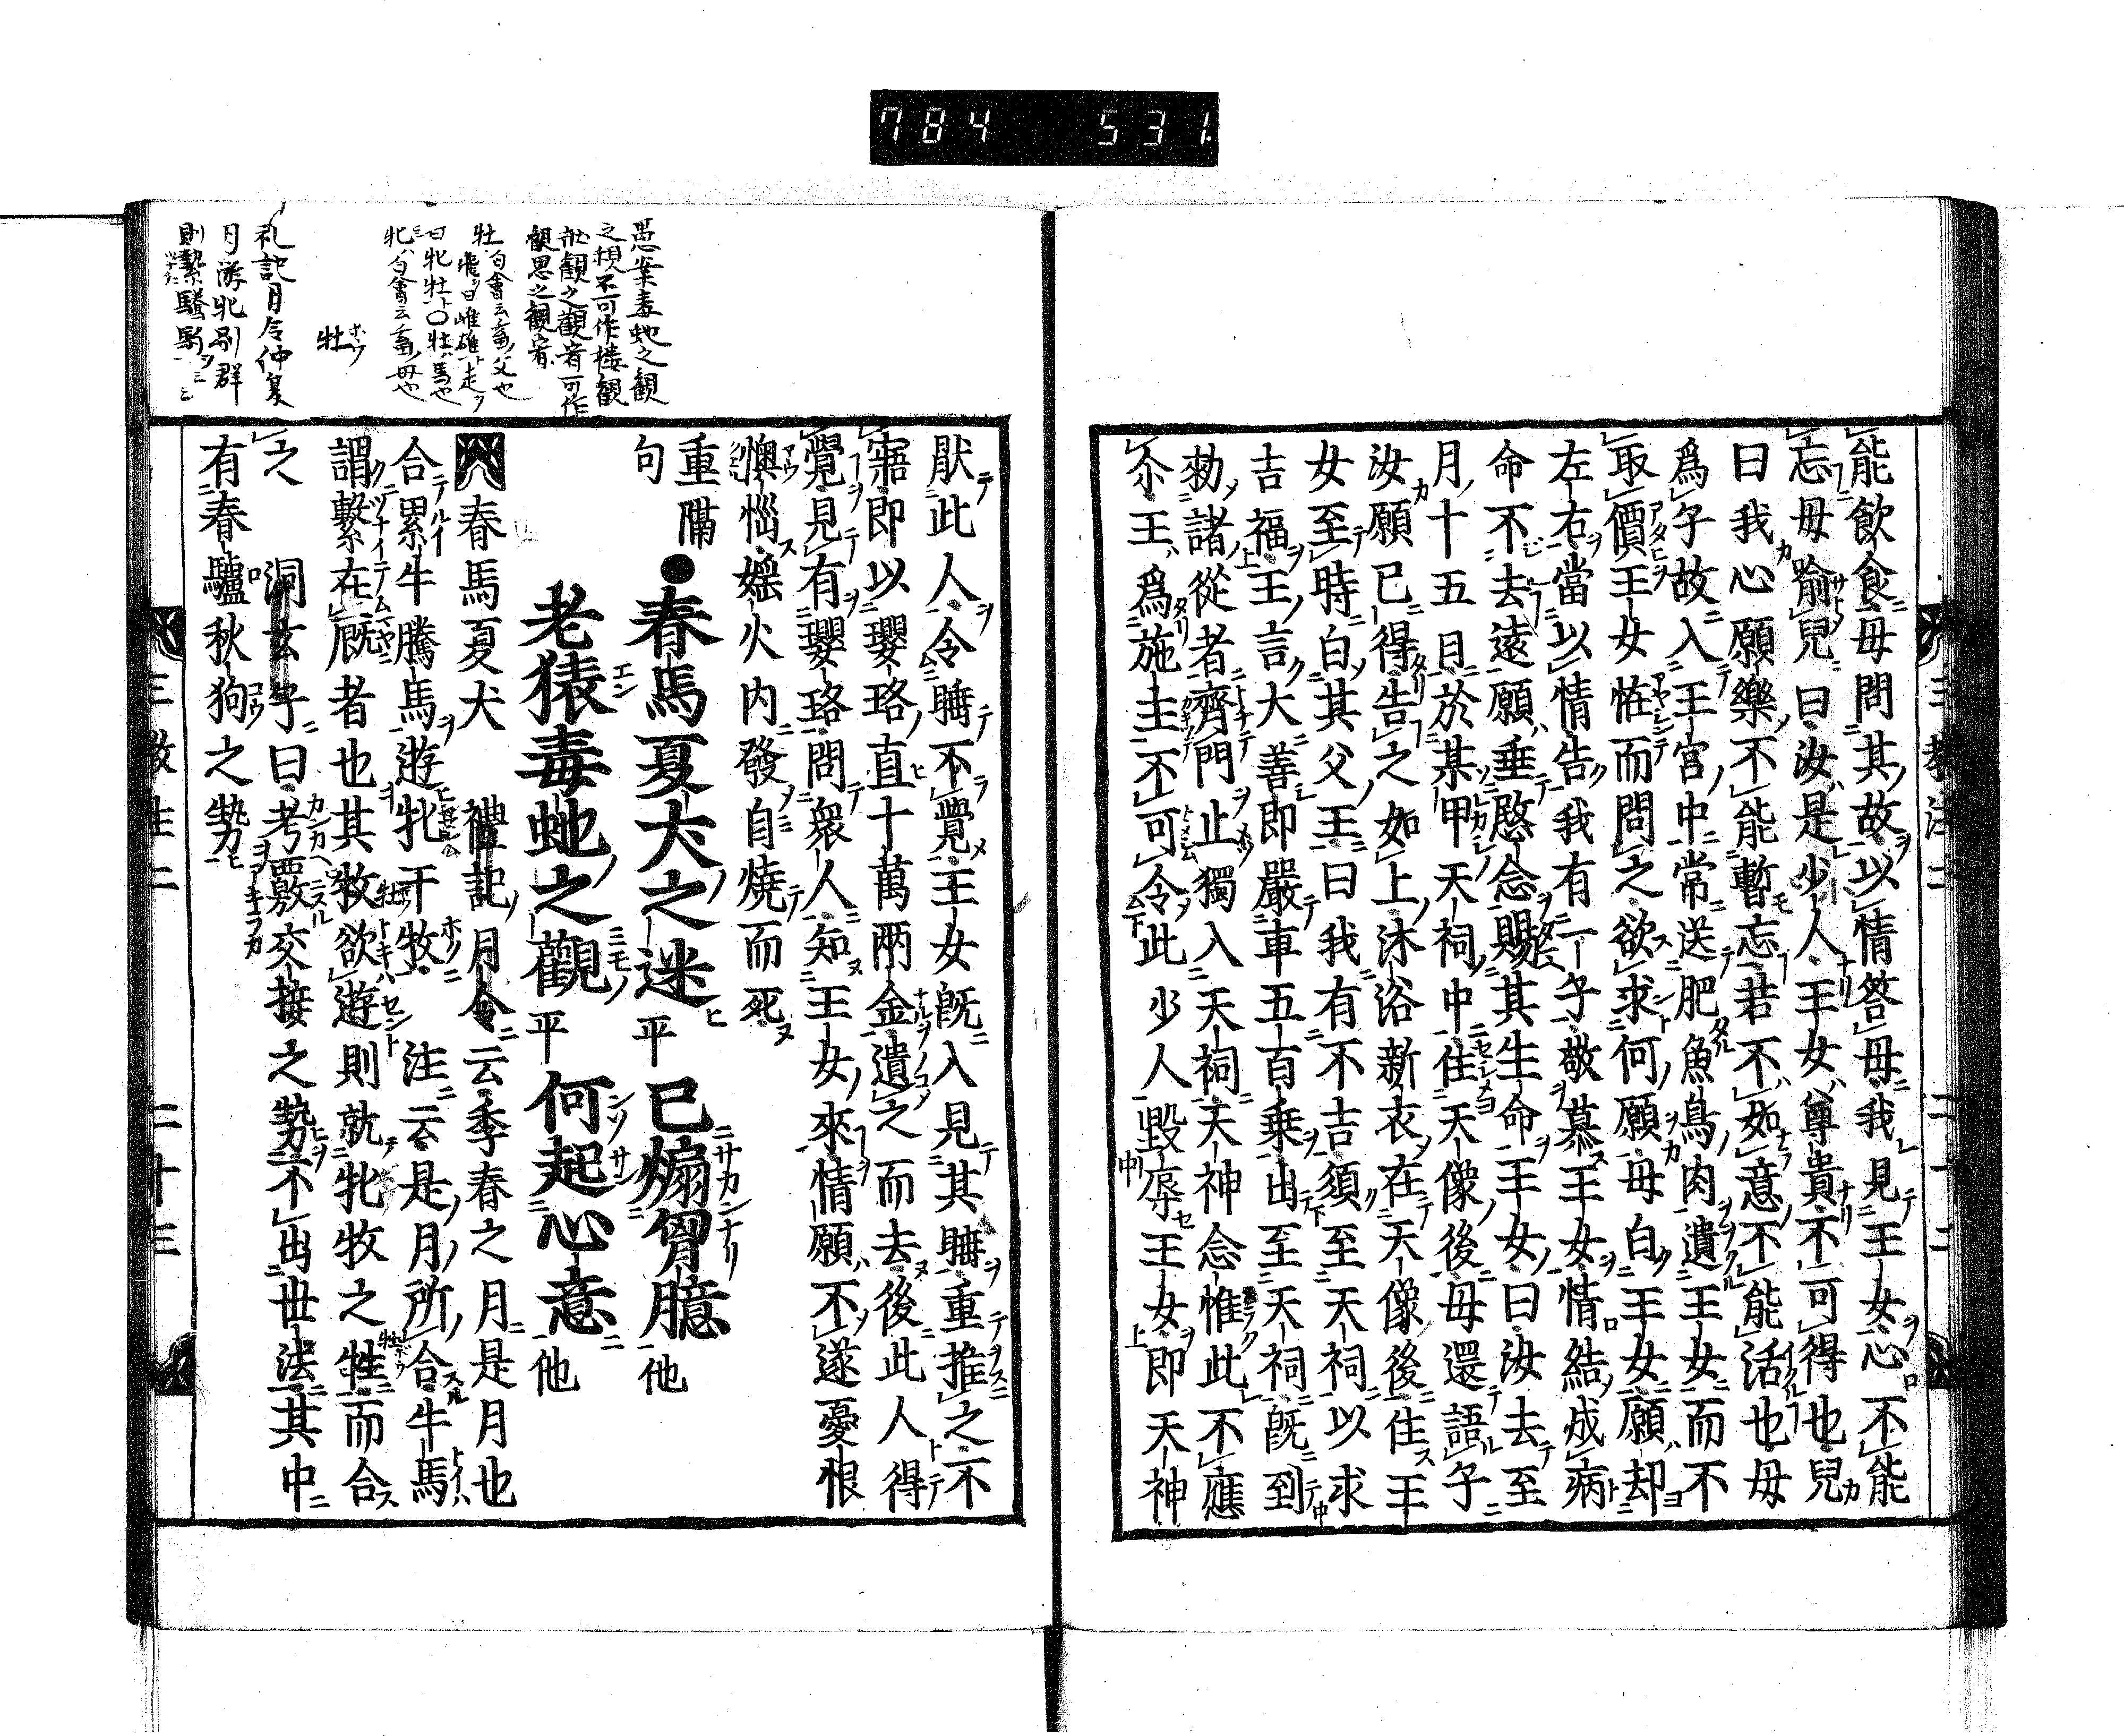 784 531
能飲食母問其故以情答母我見王女心不能
忘母喩兒曰汝是少人王女尊貴不可得也兒
曰我心願樂不能暫忘若不如意不能活也母
爲子故入王宮中常送肥魚鳥肉遺王女而不
取價王女恠而問之欲求何願母白王女願却
左右當以情告我有一子敬慕王女情結成病
命不去遠願垂愍念賜其生命王女曰汝去至
月十五日於某甲天祠中住天像後母還語子
汝願已得告之如上沐浴新衣在天像後住王
女至時白其父王曰我有不吉須至天祠以求
吉福王言大善即嚴車五百乗出至天祠既到
勅諸從者齊門止獨入天祠天神念惟此不應
尒王爲施主不可令此少人毀辱王女即天神
三教注二 二十二
厭此人令睡不覺王女既入見其睡重推之不
寤即以瓔珞直十萬兩金遺之而去後此人得
覺見有瓔珞問衆人知王女來情願不遂憂恨
懊惱婬火内發自燒而死
重隔
句
●春馬夏犬之迷平已煽胷臆他
老猿毒虵之觀平何起心意他
春馬夏犬 禮記月令云季春之月是月也
合累牛騰馬遊牝于牧 注云是月所合牛馬
謂繫在厩者也其牧欲遊則就牝牧之牲而合
之 洞玄子曰考覈交接之勢不出世法其中
有春驢秋狗之勢
三教注二 二十三
愚案毒虵之觀
之積不可作樓觀
觀思之觀
牡
礼記月令仲夏
月游牝別群
則縶騰駒